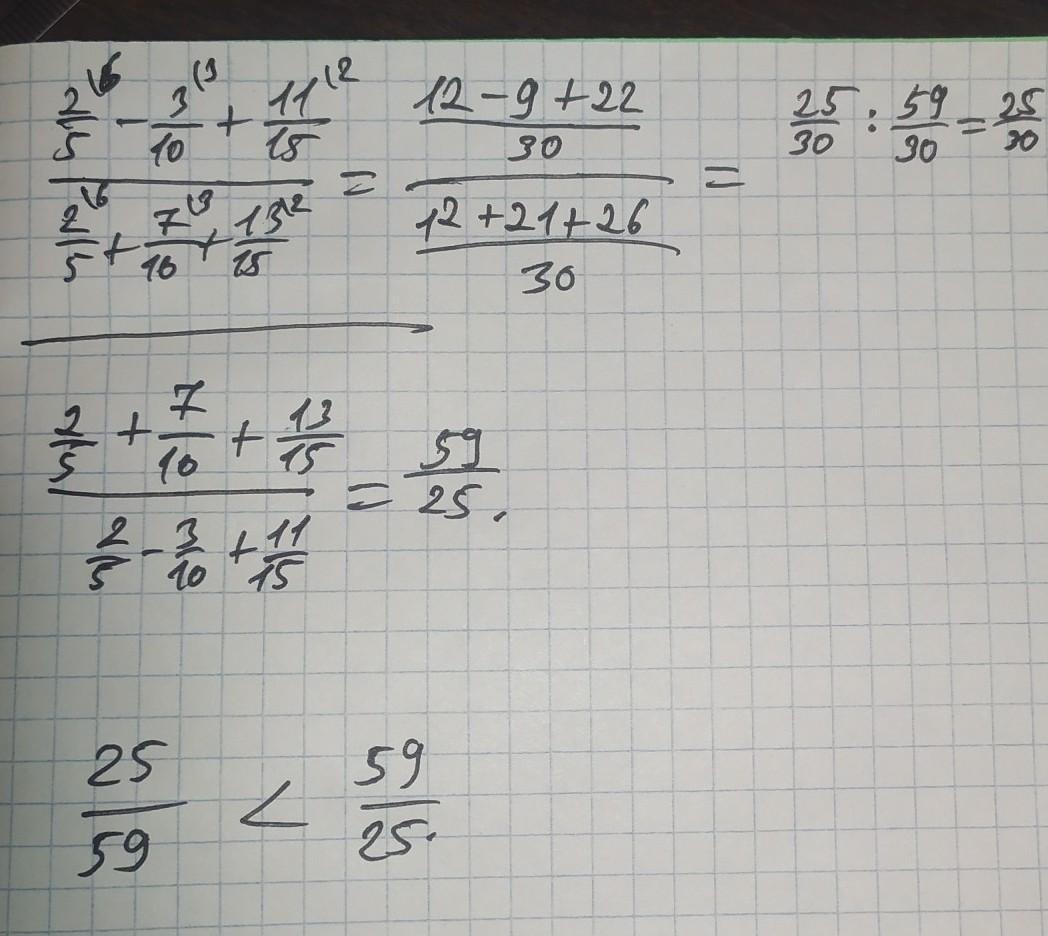 2/5 \6 − 3/10 \3 + 11/15 \2 / 2/5 \6 + 7/10 \3 + 13/15 \2 = 12 − 9 + 22 / 30 / 12 + 21 + 26 / 30 = 25/30 : 59/30 = 25/30
2/5 + 7/10 + 13/15 / 2/5 − 3/10 + 11/15 = 59/25.
25/59 < 59/25.